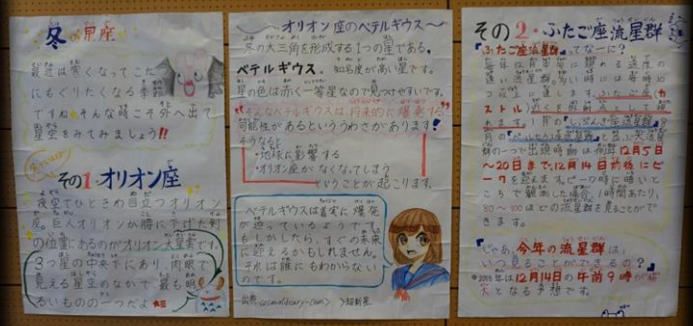 冬の星座
最近は寒くなってこた
にもぐりたくなる季節
ですね。そんな時こそ外へ出て
星空をみてみましょう!!
その1・オリオン座
夜空でひときわ目立つオリオン
座。巨人オリオンが腰に下げた剣
の位置にあるのがオリオン大星雲です。
3つ星の中央下にあり、肉眼で
見える星空のなかで最も明
るいものの一つだよ
オリオン座のベテルギウス
冬の大三角を形成する1つの星である。
ベテルギウス、知名度が高い星です。
星の色は赤く一等星なので見つけやすいです。
そんなベテルギウスは将来的に爆発する
可能性があるといううわさがあります!
そうなると
・地球に影響する
・オリオン座がなくなってしまう
ということが起こります。
ベテルギウスは着実に爆発
が迫っているようです。
もしかしたら、すぐの未来
に迎えるかもしれません。
それは誰にもわからない
のです。
出典
その2・ふたご座流星群
ふたご座流星群ってなーに?
ストル)
群の一つで出現時期は例年12月5日
〜20日まで、12月14日前後にピー
クを迎えます。ピーク時に暗いと
ころで観測した場合、1時間あたり、
80〜100ほどの流星群を見ることがで
きます。
じゃあ、今年の流星群は、
いつ見ることができるの?
年は12月14日の午前9時が極
大となる予想です。